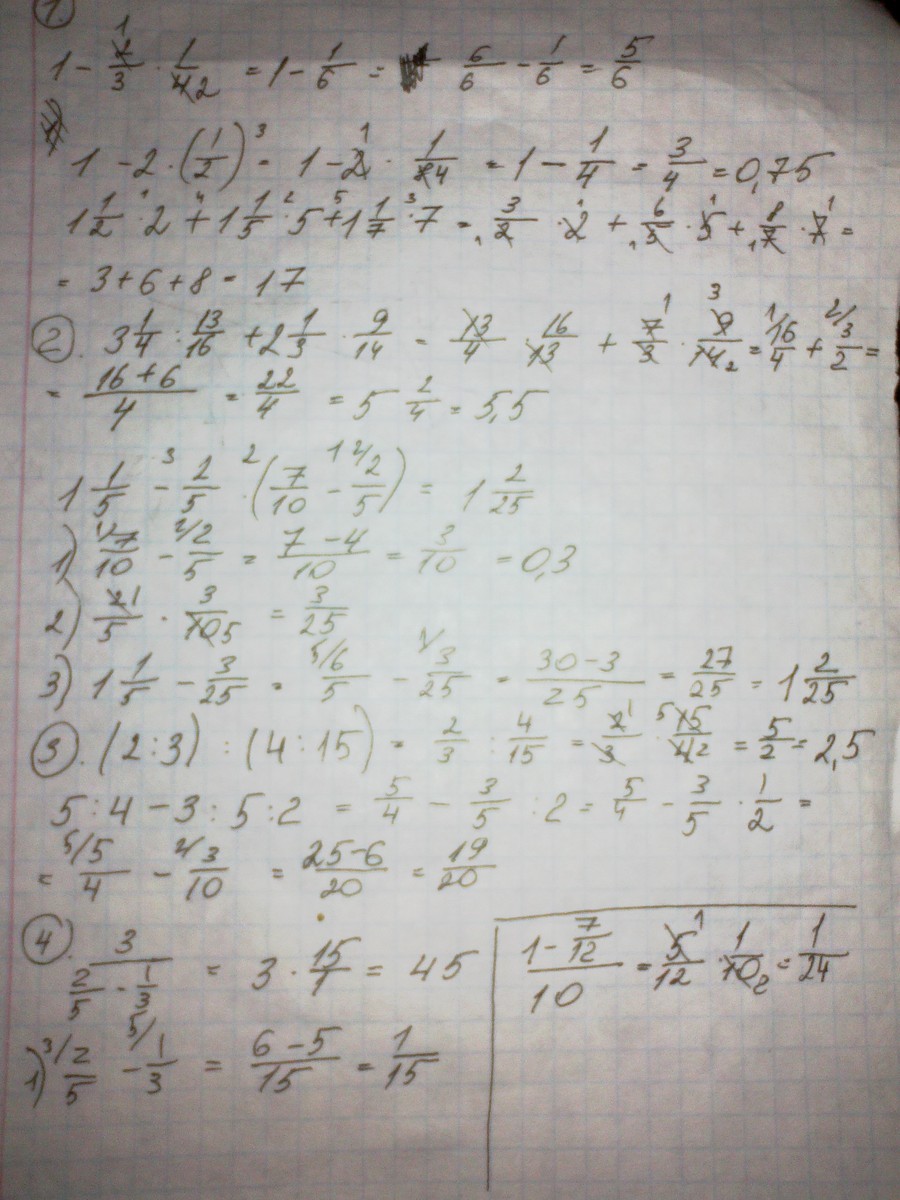 1.
1 - 2/3 · 1/4 = 1 - 1/6 = 6/6 - 1/6 = 5/6
1 - 2 · (1/2)³ = 1 - 2 · 1/8 = 1 - 1/4 = 3/4 = 0,75
1 1/2 · 2 + 1 1/5 · 5 + 1 1/7 · 7 = 3/2 · 2 + 6/5 · 5 + 8/7 · 7 =
= 3 + 6 + 8 = 17
2. 3 1/4 · 13/16 + 2 1/3 · 9/14 = 13/4 · 16/13 + 7/3 · 9/14 = 16/4 + 3/2 =
= (16 + 6)/4 = 22/4 = 5 2/4 = 5,5
1 1/5 - 2/5 · (7/10 - 2/5) = 1 2/25
1) 7/10 - 2/5 = (7 - 4)/10 = 3/10 = 0,3
2) 2/5 · 3/10 = 3/25
3) 1 1/5 - 3/25 = 6/5 - 3/25 = (30 - 3)/25 = 27/25 = 1 2/25
3. (2 : 3) : (4 : 15) = 2/3 : 4/15 = 2/3 · 15/4 = 5/2 = 2,5
5 : 4 - 3 : 5 : 2 = 5/4 - 3/5 : 2 = 5/4 - 3/5 · 1/2 =
= 5/4 - 3/10 = (25 - 6)/20 = 19/20
4. 3/(2/5 - 1/3) = 3 · 15/1 = 45
1) 2/5 - 1/3 = (6 - 5)/15 = 1/15
(1 - 7/12)/10 = 5/12 · 1/10 = 1/24